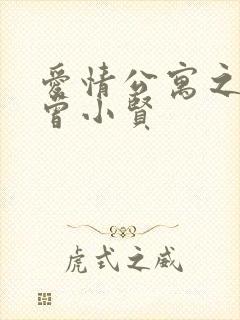 爱情公寓之
曾小贤
虎式之威